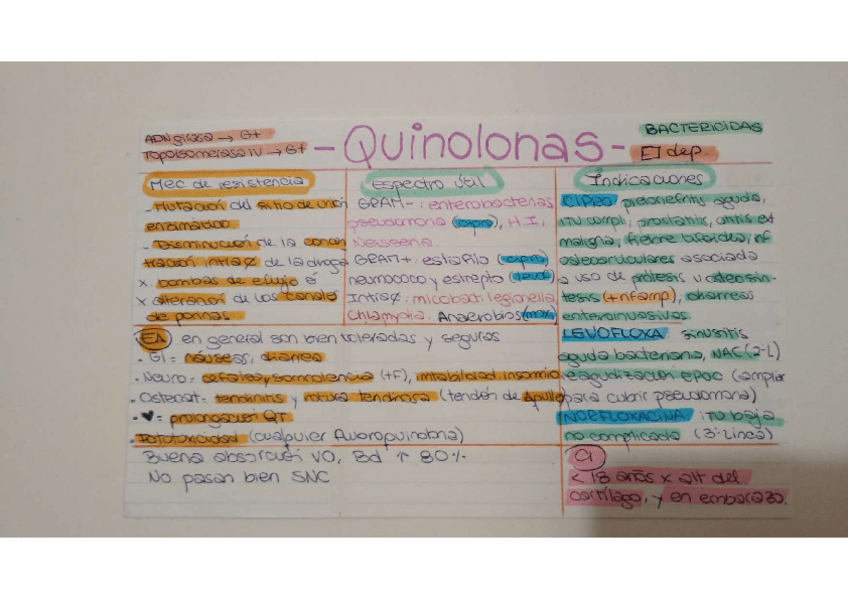 ADN girasa → G+
Topoisomerasa IV → G+
- Quinolonas -
BACTERICIDAS
dep.
Mec de resistencia
- Mutación del sitio de unión
enzimático
- Disminución de la concen
tración intra¢ de la droga
x bombas de eflujo é
x alteración de los canales
de porinas
Espectro útil
GRAM-: enterobacterias
pseudomona (cipro), H.I,
Neisseria
GRAM+: estafilo (cipro)
neumococo y estrepto (levo)
Intra¢: micobact. legionella
chlamydia. Anaerobios (moxi)
Indicaciones
CIPRO: pielonefritis aguda,
ITU compli, prostatitis, otitis ext
maligna, fiebre tifoidea, inf
osteoarticulares asociada
a uso de prótesis u osteosín-
tesis (+rifamp), diarreas
enteroinvasivas.
LEVOFLOXA: sinusitis
aguda bacteriana, NAC (2°L)
reagudización EPOC (ampliar
para cubrir pseudomona)
NORFLOXACINA: itu baja
no complicada (3° línea)
EA en general son bien toleradas y seguras
• GI = náuseas, diarrea
• Neuro = cefalea y somnolencia (+F), irritabilidad, insomnio
• Osteoart = tendinitis y rotura tendinosa (tendón de Aquiles)
• ♥ = prolongación QT
• Fototoxicidad (cualquier fluoroquinolona)
Buena absorción VO, Bd ↑ 80%
No pasan bien SNC
CI
< 18 años x alt del
cartílago, y en embarazo.